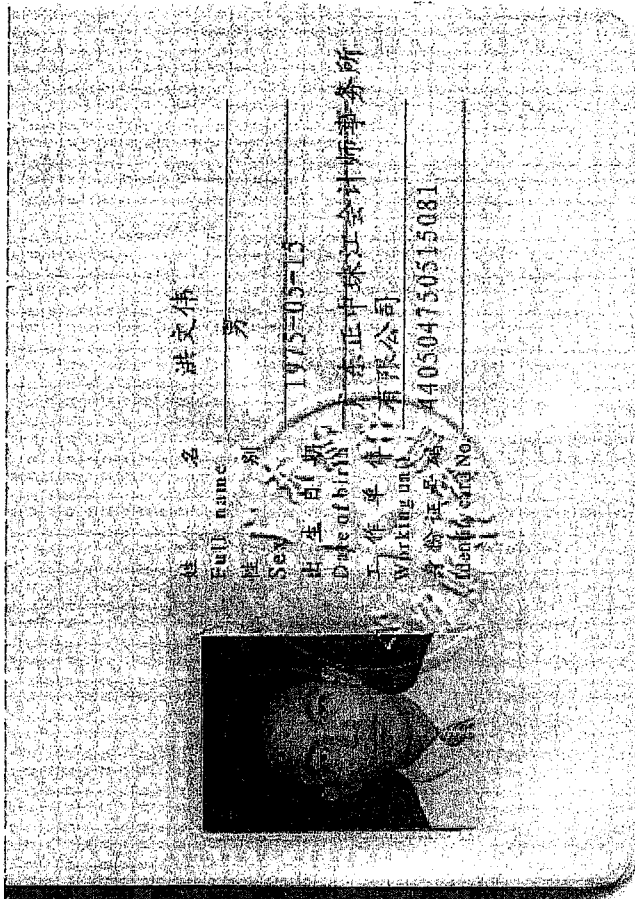 姓 名 洪文伟
Full name
性 别 男
Sex
出 生 日 期 1975-05-15
Date of birth
工 作 单 位 广东正中珠江会计师事务所
Working unit 有限公司
身 份 证 号 码 440504750515081
Identity card No.